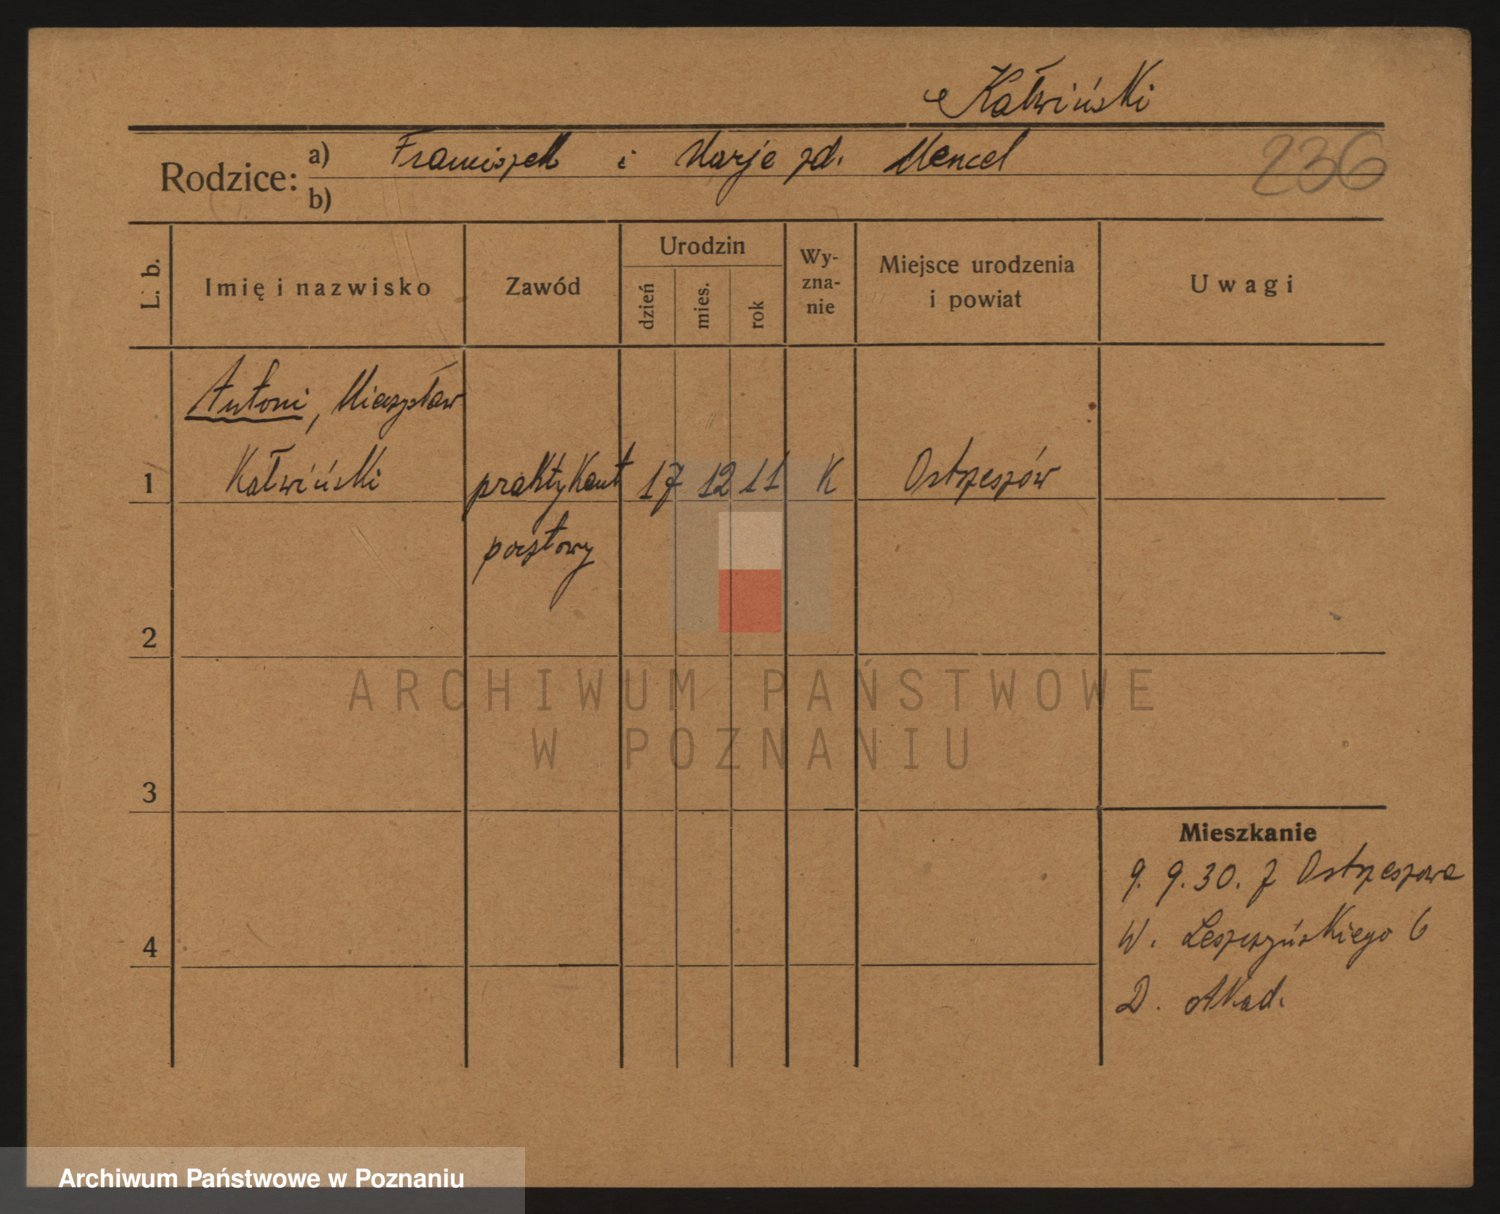 Kałwiński
Rodzice: a) Franciszek i Marje zd. Mencel
b)
236
L. b.
Imię i nazwisko
Zawód
Urodzin
dzień
mies.
rok
Wy-
zna-
nie
Miejsce urodzenia
i powiat
Uwagi
Antoni, Mieczysław
1 Kałwiński praktykant 17 12 11 K Ostrzeszów
pocztowy
2
ARCHIWUM PAŃSTWOWE
W POZNANIU
3
Mieszkanie
9. 9. 30. z Ostrzeszowa
W. Leszczyńskiego 6
4
D. Akad.
Archiwum Państwowe w Poznaniu